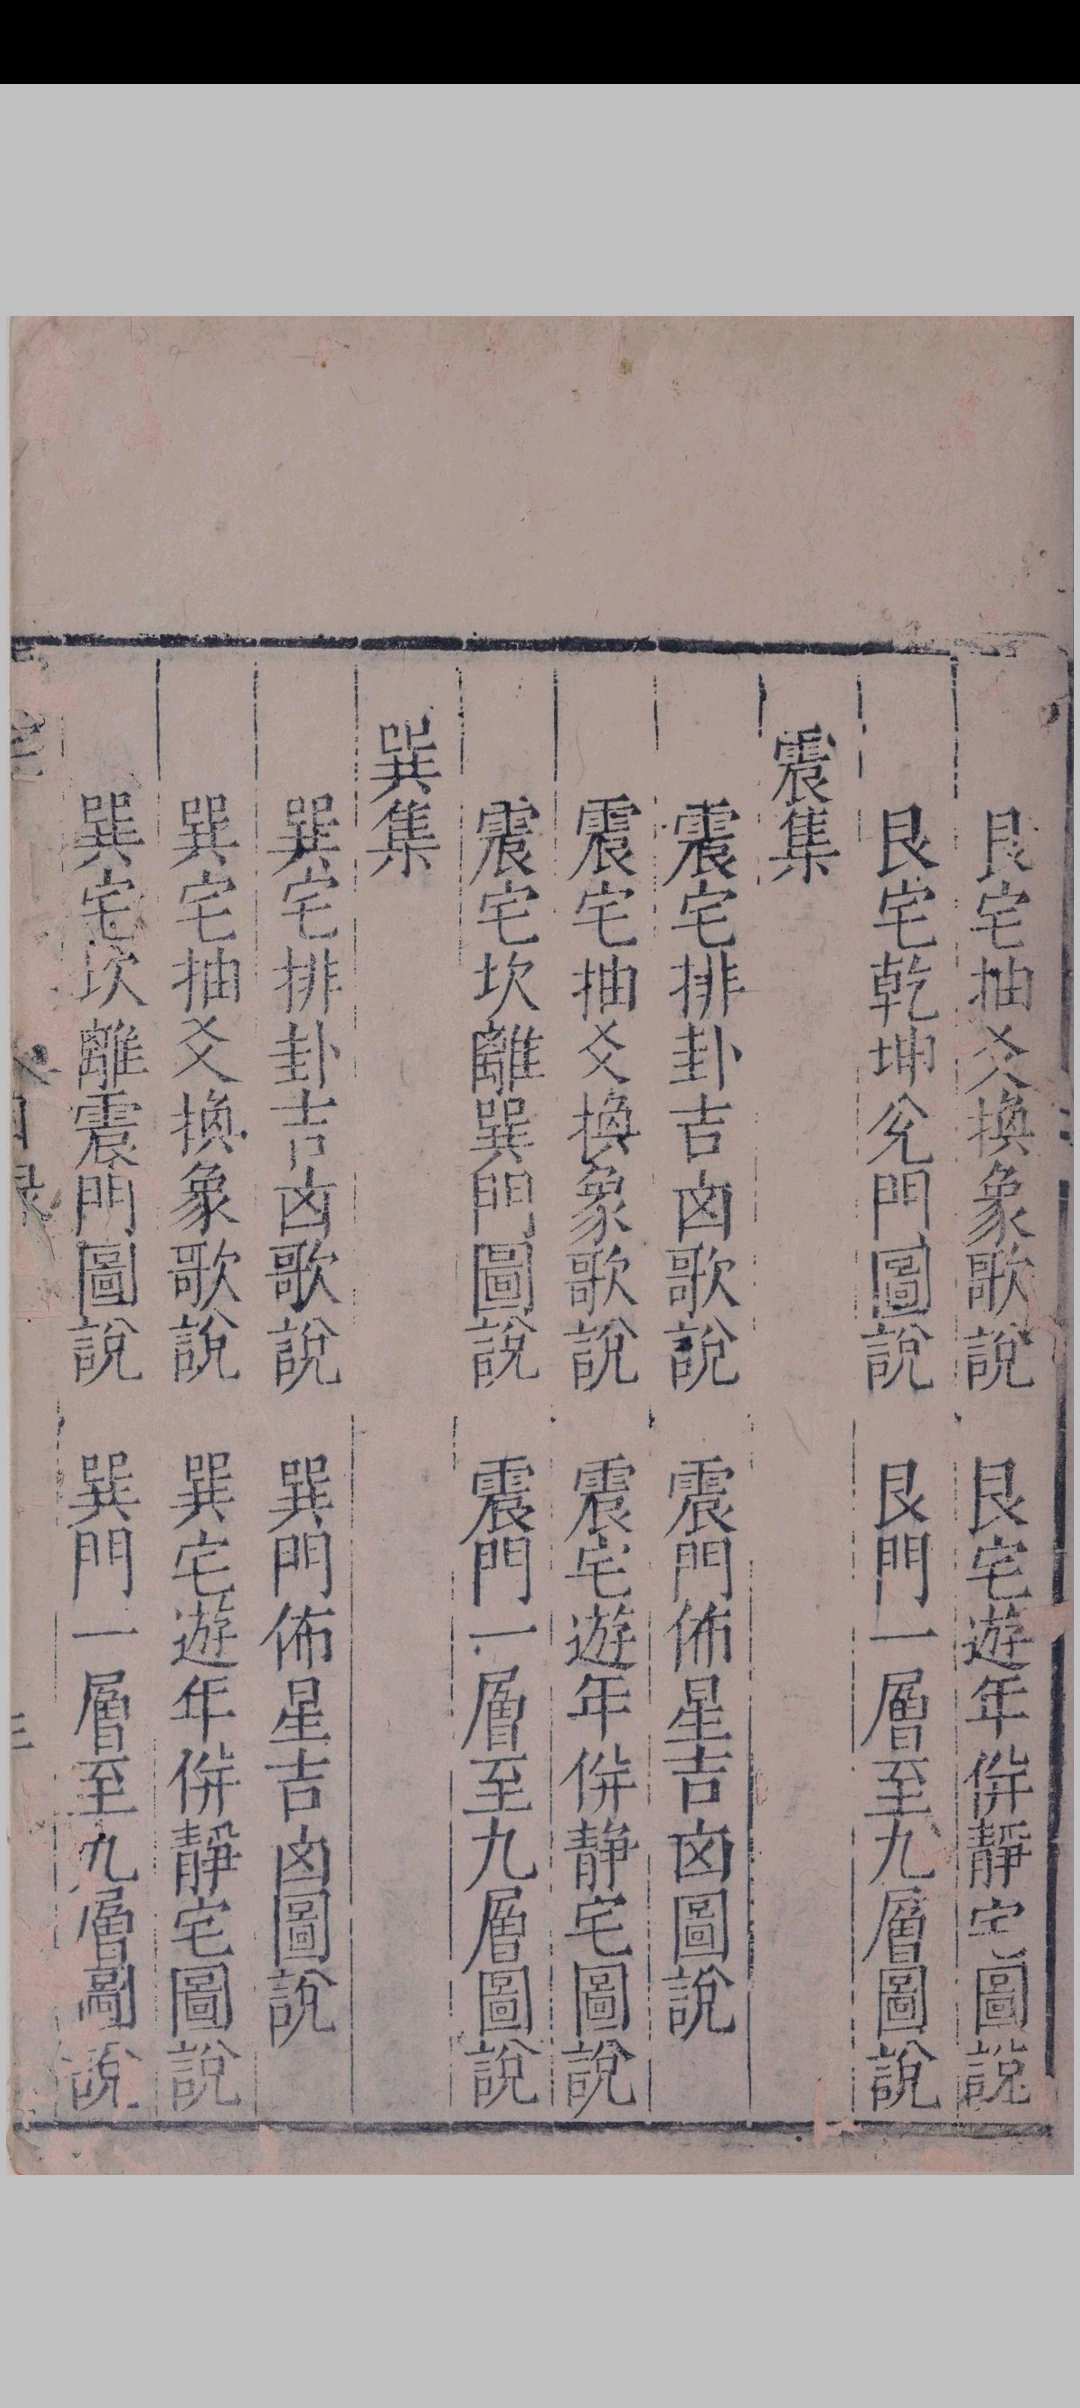 艮宅抽爻換象歌說　艮宅遊年倂靜宅圖說
艮宅乾坤兌門圖說　艮門一層至九層圖說
震集
震宅排卦吉凶歌說　震門佈星吉凶圖說
震宅抽爻換象歌說　震宅遊年倂靜宅圖說
震宅坎離巽門圖說　震門一層至九層圖說
巽集
巽宅排卦吉凶歌說　巽門佈星吉凶圖說
巽宅抽爻換象歌說　巽宅遊年倂靜宅圖說
巽宅坎離震門圖說　巽門一層至九層圖說